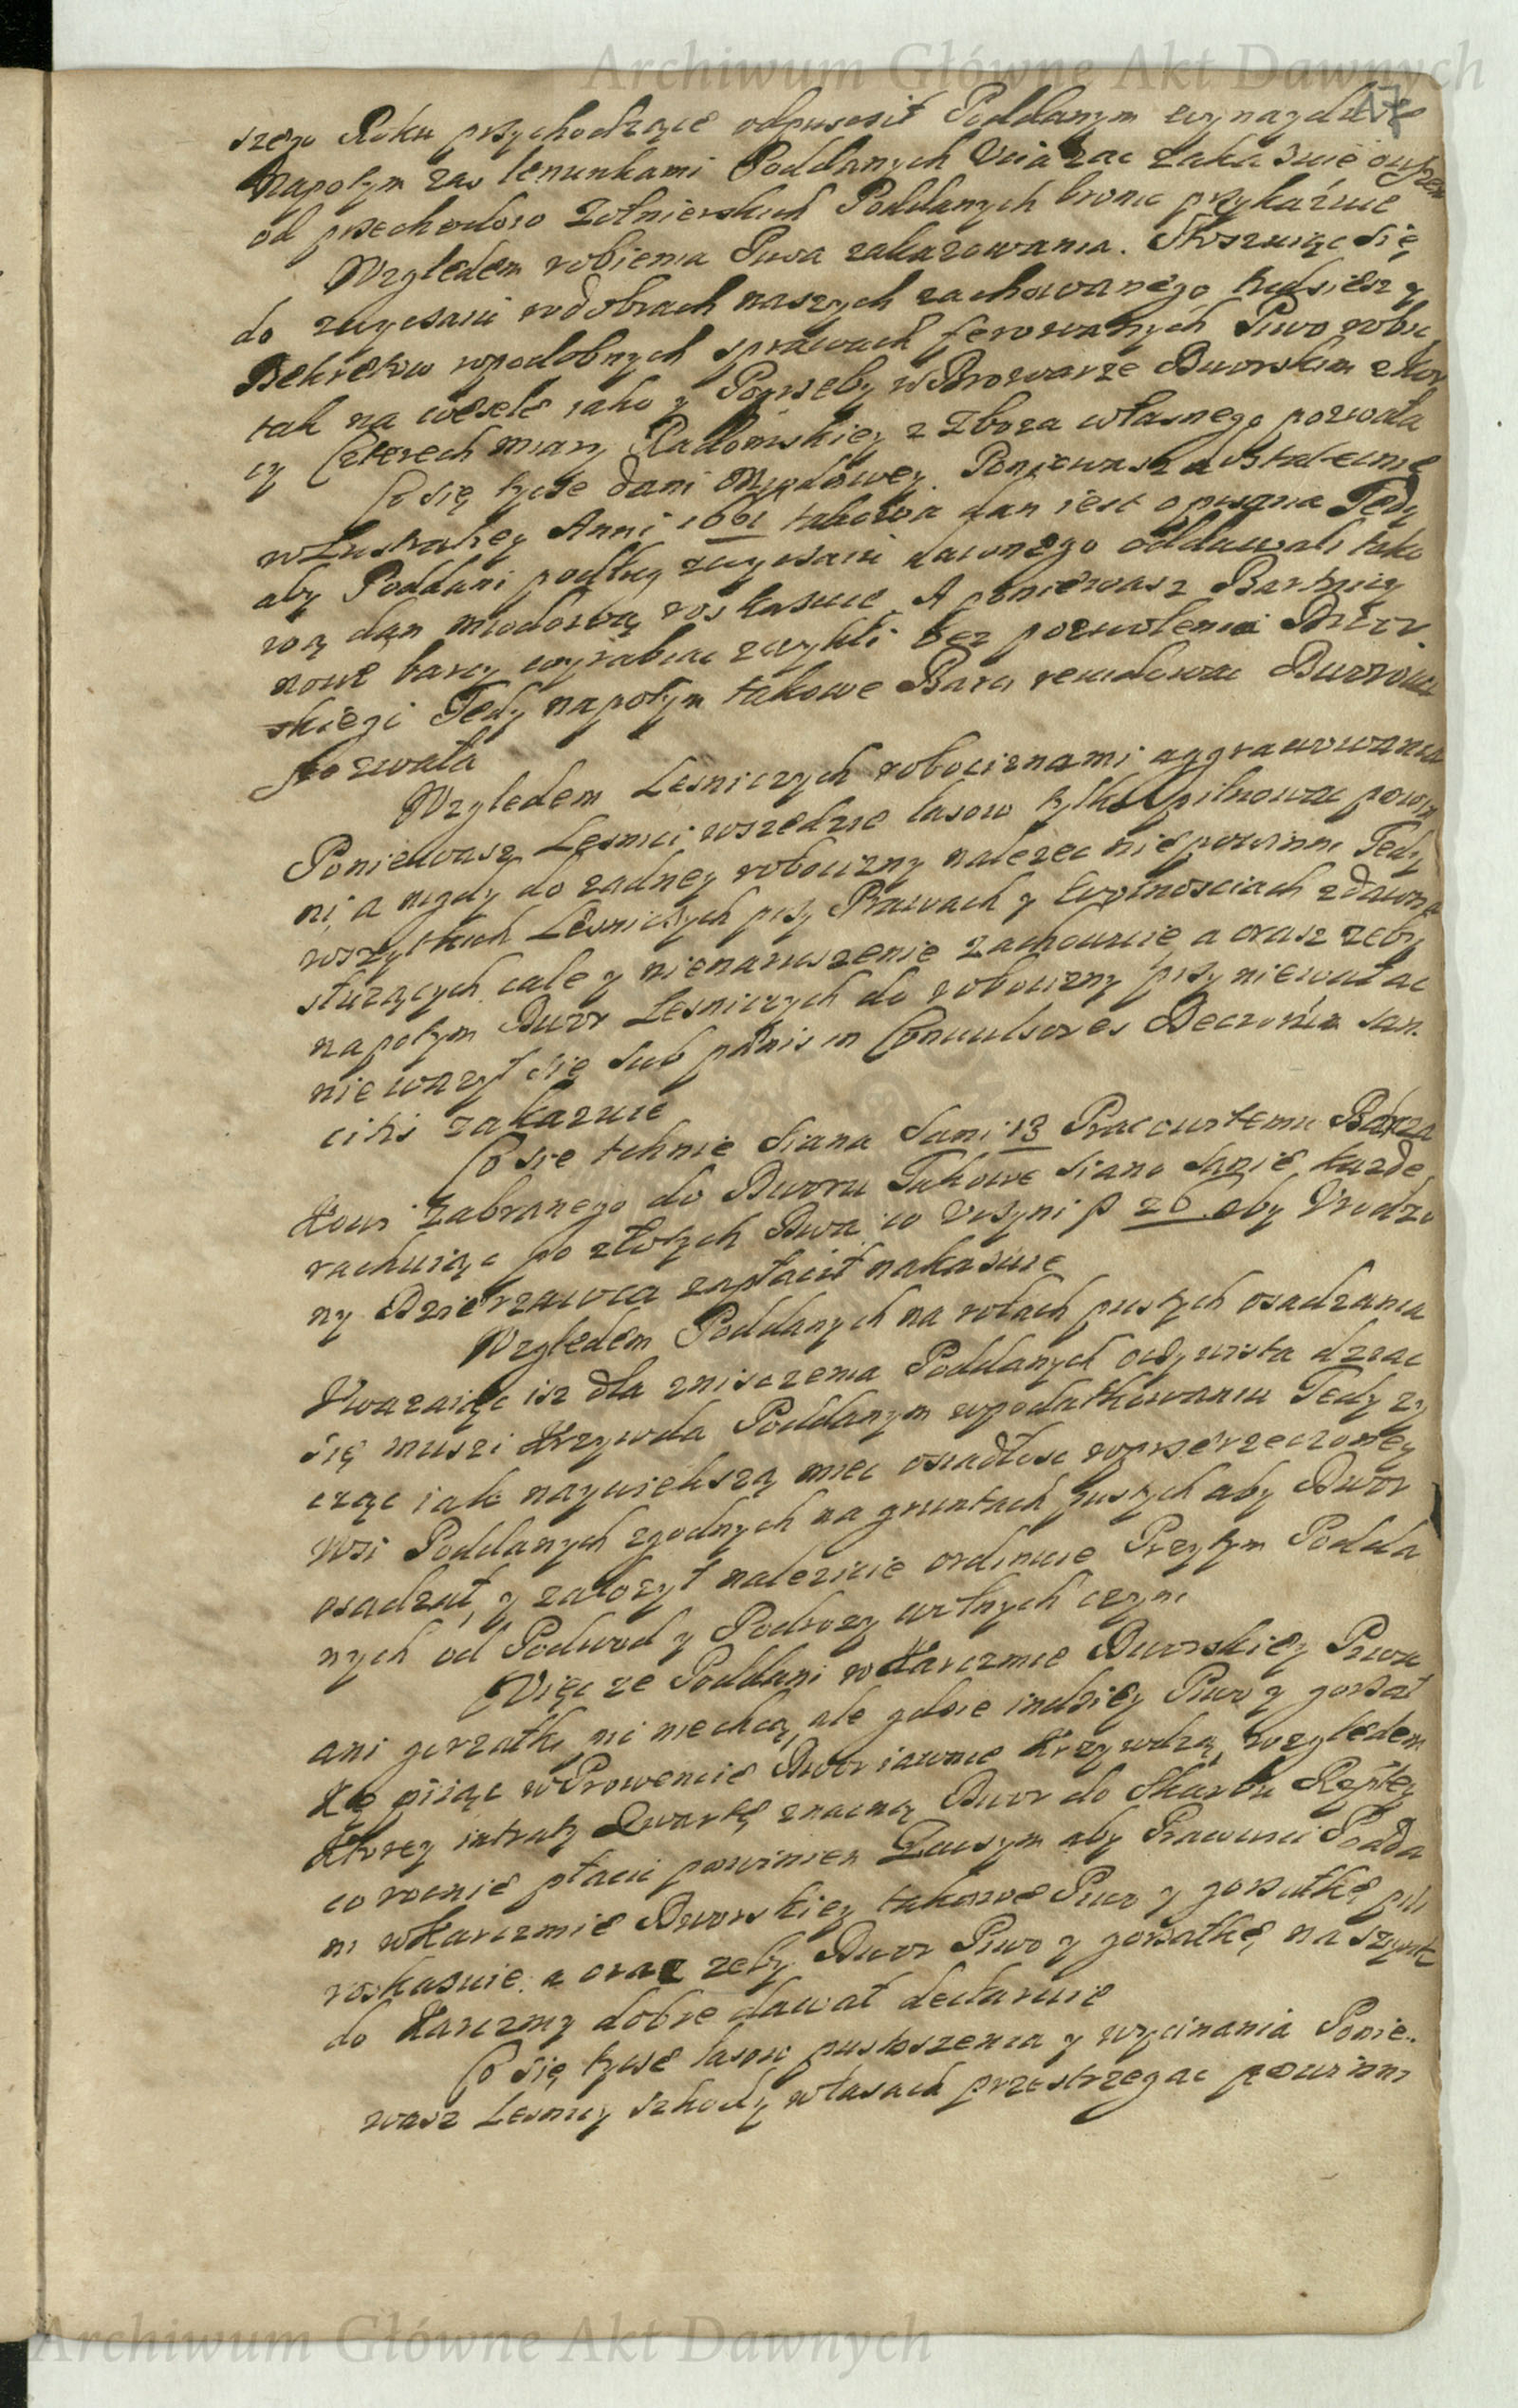 Archiwum Główne Akt Dawnych
17
szego Roku przychodzące odpuscił Poddanym wynayduie
Napotym zas lenunkami Poddanych Uciązac zakazuie owszem
od przechodow Zołnierskich Poddanych bronic przykazuie
Względem robienia Piwa zakazowania. Stoszuiąc się
do zwyczaiu w dobrach naszych zachowanego tudziesz y
Dekretow w podobnych sprawach ferowanych Piwo robic
tak na wesele iako y Pogrzeby w Browarze Dworskim z kor
cy Czterech miary Radomskiey z Zboza własnego pozwala
Co się tycze dani Miodowey. Poniewasz dostatecznie
w Lustratiey Anni 1661 takowa dan iest opisana Tedy
aby Poddani podług zwyczaiu dawnego oddawali tako
wą dan miodową roskazuie. A poniewasz Bartnicy
nowe barcy wyrabiac zwykli bez pozwolenia Dwor
skiego Tedy napotym takowe Barci rewidowac Dworowi
pozwala
Względem Lesniczych robociznami aggrawowania
Poniewasz Lesnici wszędzie lasow tylko pilnowac powin
ni, a nigdy do zadney robocizny nalezec nie powinni Tedy
wszytkich Lesniczych przy Prawach y Wolnosciach zdawna
słuzących cale y nienaruszenie zachowuie, a oraz zeby
napotym Dwor Lesniczych do robocizny przyniewalac
nie wazył się sub pænis in Convulsores Decretor̃ San
citis zakazuie
Co sie tchnie Siana Sani 13 Pracowitemu
kowi zabranego do Dworu Takowe siano Sanie kazde
rachuiąc po złotych Dwa co Uczyni ƒ 26 aby Urodzo
ny Dzierzawca zapłacił nakazuie
Względem Poddanych na rolach pustych osadzania
Uwazaiąc isz dla zniszczenia Poddanych oczywista dziac
się muszi krzywda Poddanym w podatkowaniu Tedy zy
cząc iak naywiększą miec osiadłosc w przerzeczoney
Wsi Poddanych zgodnych na gruntach pustych aby Dwor
osadzał, y załozył nalezicie ordinuie Przytym Podda
nych od Podwod y Podrozy wolnych czyni
Więc ze Poddani w Karczmie Dworskiey Piwa
ani gorzałki pic niechcą, ale gdzie indziey Piwo y gorzał
kę piiąc w Prowencie Dwor iawnie krzywdzą, względem
Ktorey intraty Kwartę znaczną Dwor do Skarbu Rzptey
co rocznie płacic powinien Zaczym aby Pracowici Podda
ni w Karczmie Dworskiey takowe Piwo y gorzałkę pili
roskazuie. a oraz zeby Dwor Piwo y gorzałkę, na szynk
do Karczmy dobre dawał declaruie
Co się tycze lasow pustoszenia y wycinania Ponie-
wasz Lesnicy szkody w lasach przestrzegac powinni
Archiwum Główne Akt Dawnych